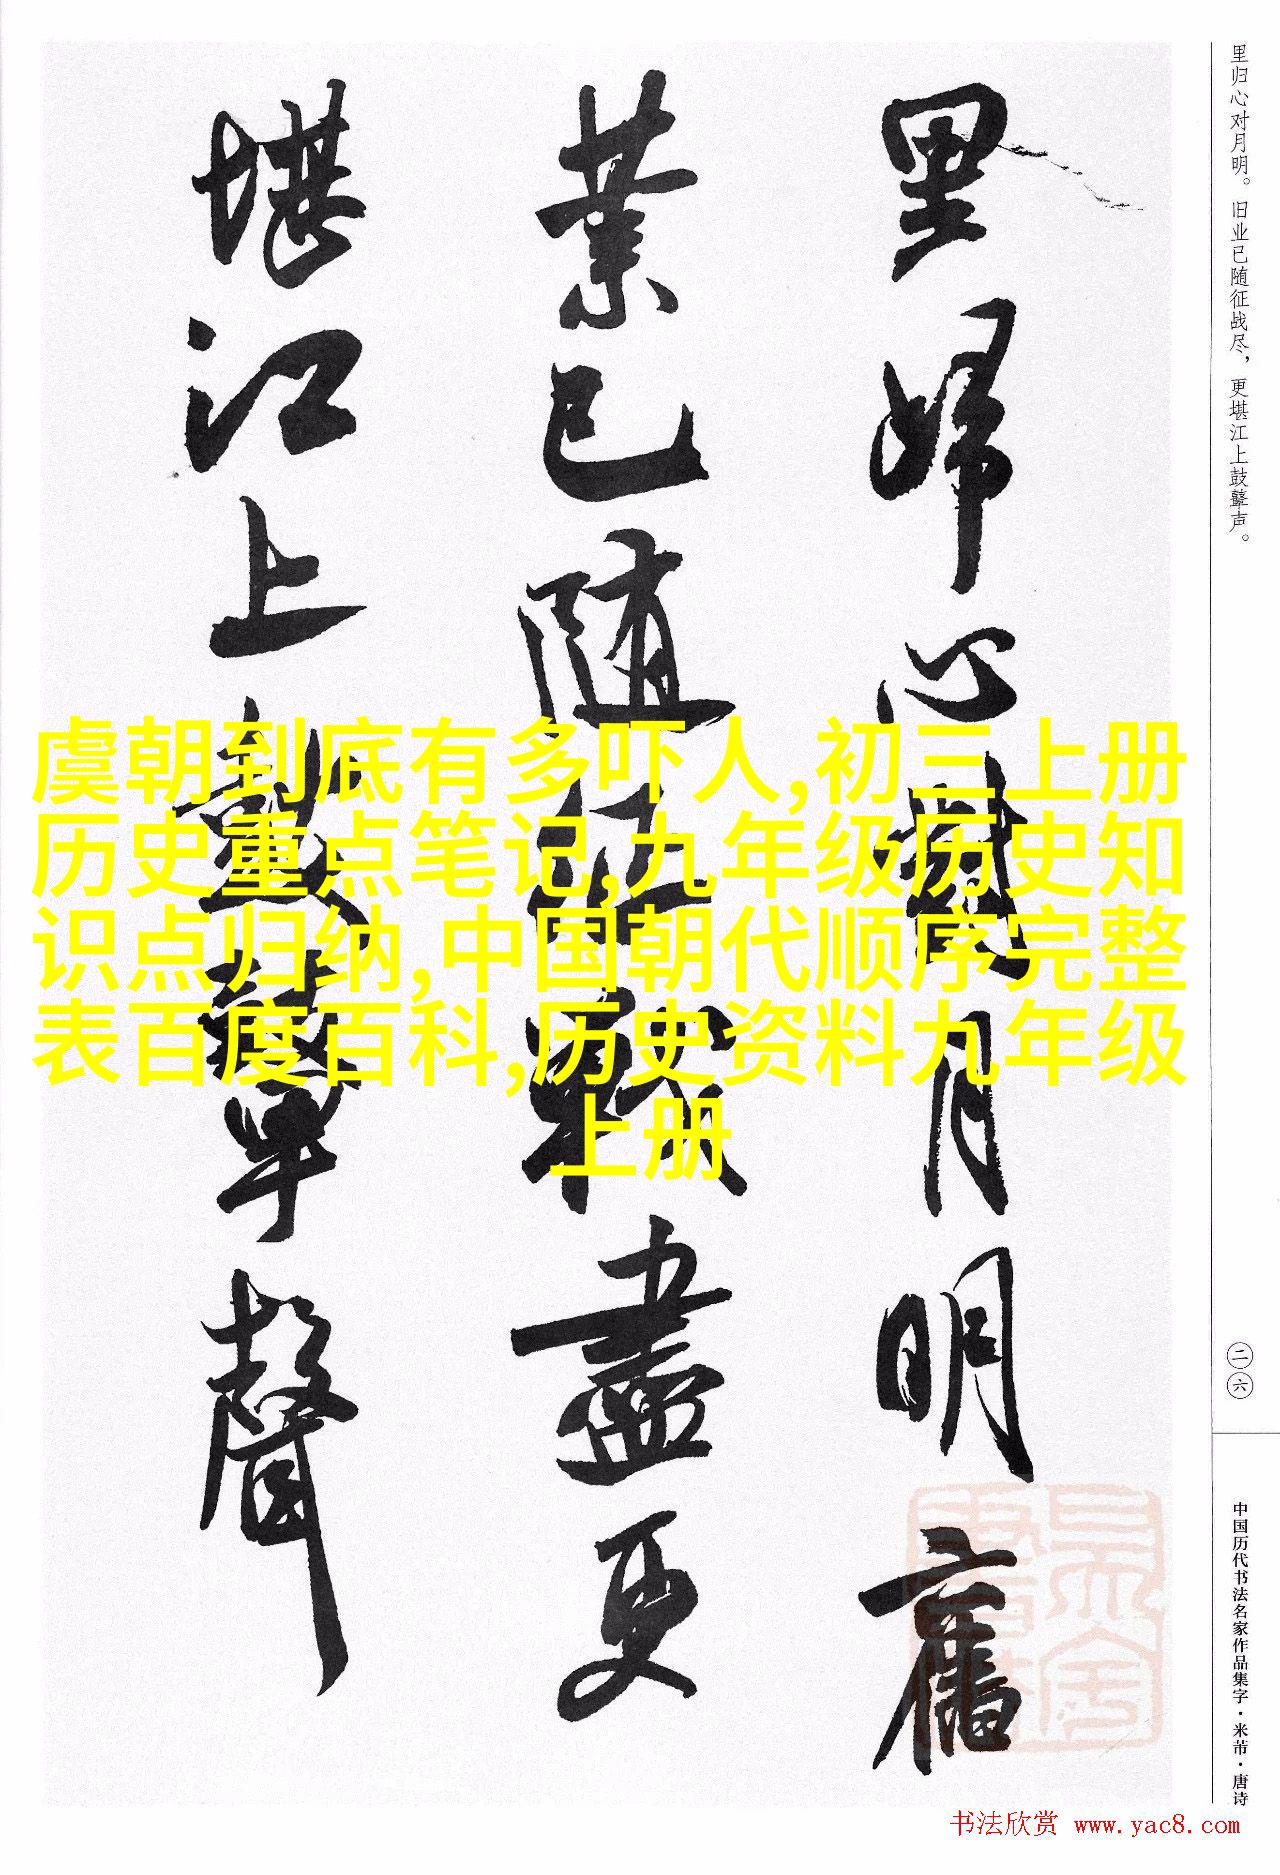 里归心对月明。旧业已随征战尽，更堪江上鼓鼙声。
里歸心對月明舊
業已隨征戰盡更
堪江上鼓鼙聲
虞朝到底有多吓人,初三上册
历史重点笔记,九年级历史知
识点归纳,中国朝代顺序完整
表百度百科,历史资料九年级
上册
二六
中国历代书法名家作品集字·米芾·唐诗
书法欣赏 www.yac8.com